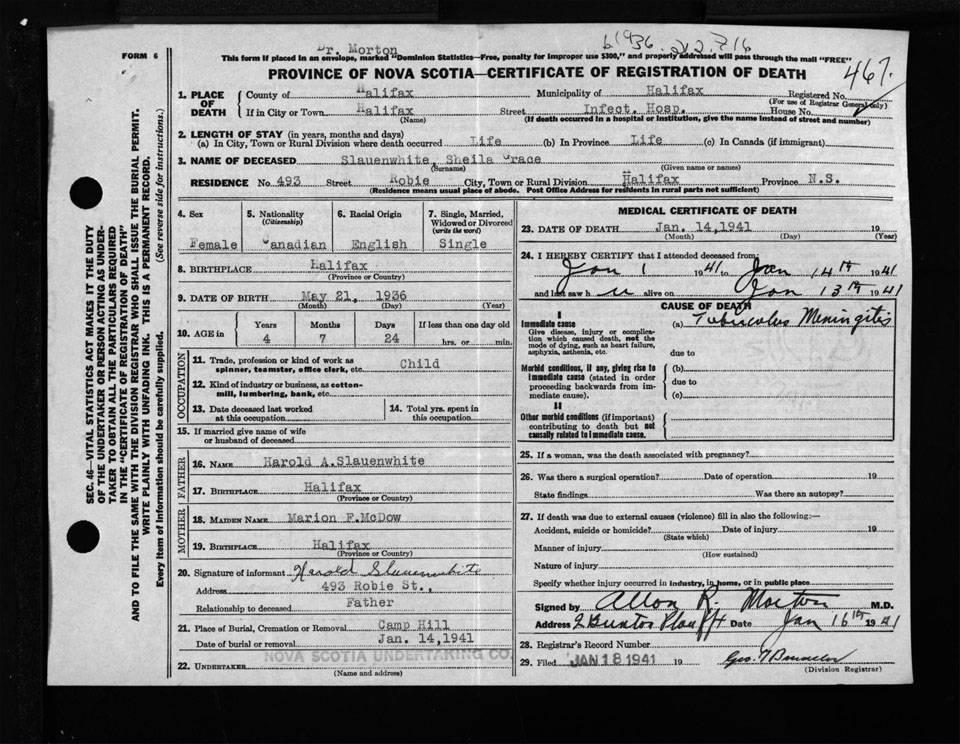 FORM 6
Dr. Morton
61936.212.716
This form if placed in an envelope, marked "Dominion Statistics—Free, penalty for improper use $300," and properly addressed will pass through the mail "FREE"
PROVINCE OF NOVA SCOTIA—CERTIFICATE OF REGISTRATION OF DEATH
467.
1. PLACE OF DEATH
County of Halifax Municipality of Halifax Registered No.
(For use of Registrar General only)
If in City or Town Halifax Street Infect. Hosp. House No.
(Name) (If death occurred in a hospital or institution, give the name instead of street and number)
2. LENGTH OF STAY (in years, months and days)
(a) In City, Town or Rural Division where death occurred Life (b) In Province Life (c) In Canada (if immigrant)
3. NAME OF DECEASED Slauenwhite, Sheila Grace
(Surname) (Given name or names)
RESIDENCE No. 493 Street Robie City, Town or Rural Division Halifax Province N.S.
(Residence means usual place of abode. Post Office Address for residents in rural parts not sufficient)
4. Sex
Female
5. Nationality
(Citizenship)
Canadian
6. Racial Origin
English
7. Single, Married, Widowed or Divorced
(write the word)
Single
8. BIRTHPLACE Halifax
(Province or Country)
9. DATE OF BIRTH May 21, 1936
(Month) (Day) (Year)
10. AGE in
Years Months Days If less than one day old
4 7 24 hrs. or min.
OCCUPATION
11. Trade, profession or kind of work as spinner, teamster, office clerk, etc. Child
12. Kind of industry or business, as cotton-mill, lumbering, bank, etc.
13. Date deceased last worked at this occupation
14. Total yrs. spent in this occupation
15. If married give name of wife or husband of deceased
FATHER
16. NAME Harold A.Slauenwhite
17. BIRTHPLACE Halifax
(Province or Country)
MOTHER
18. MAIDEN NAME Marion F.McDow
19. BIRTHPLACE Halifax
(Province or Country)
20. Signature of informant Harold Slauenwhite
Address 493 Robie St.,
Relationship to deceased Father
21. Place of Burial, Cremation or Removal Camp Hill
Date of burial or removal Jan. 14,1941
22. UNDERTAKER NOVA SCOTIA UNDERTAKING CO.
(Name and address)
MEDICAL CERTIFICATE OF DEATH
23. DATE OF DEATH Jan. 14,1941 19
(Month) (Day) (Year)
24. I HEREBY CERTIFY that I attended deceased from:
Jan 1 1941 to Jan 14th 1941
and last saw h alive on Jan 13th 1941
CAUSE OF DEATH
I
Immediate cause
Give disease, injury or complication which caused death, not the mode of dying, such as heart failure, asphyxia, asthenia, etc.
(a) Tuberculos Meningitis
due to
Morbid conditions, if any, giving rise to immediate cause (stated in order proceeding backwards from immediate cause).
(b)
due to
(c)
II
Other morbid conditions (if important) contributing to death but not causally related to immediate cause.
25. If a woman, was the death associated with pregnancy?
26. Was there a surgical operation? Date of operation 19
State findings Was there an autopsy?
27. If death was due to external causes (violence) fill in also the following:—
Accident, suicide or homicide? Date of injury 19
(State which)
Manner of injury
(How sustained)
Nature of injury
Specify whether injury occurred in industry, in home, or in public place
Signed by Allan R. Morton M.D.
Address Date Jan 16th 1941
28. Registrar's Record Number
29. Filed JAN 18 1941 19
(Division Registrar)
SEC. 46—VITAL STATISTICS ACT MAKES IT THE DUTY
OF THE UNDERTAKER OR PERSON ACTING AS UNDER-
TAKER TO OBTAIN ALL THE PARTICULARS REQUIRED
IN THE "CERTIFICATE OF REGISTRATION OF DEATH"
AND TO FILE THE SAME WITH THE DIVISION REGISTRAR WHO SHALL ISSUE THE BURIAL PERMIT.
WRITE PLAINLY WITH UNFADING INK. THIS IS A PERMANENT RECORD.
Every item of information should be carefully supplied. (See reverse side for instructions.)